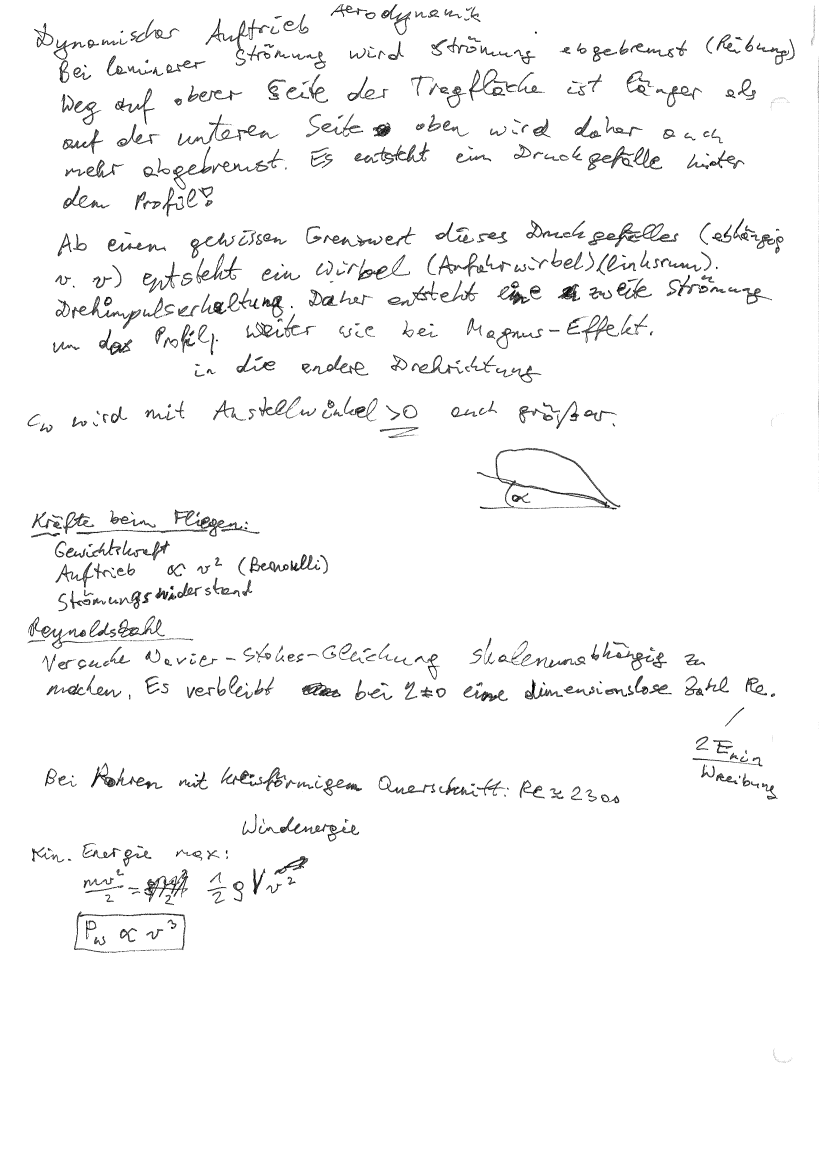 Aerodynamik
Dynamischer Auftrieb
Bei laminarer Strömung wird Strömung abgebremst (Reibung)
Weg auf oberer Seite der Tragfläche ist länger als
auf der unteren Seite oben wird daher auch
mehr abgebremst. Es entsteht ein Druckgefälle hinter
dem Profil!
Ab einem gewissen Grenzwert dieses Druckgefälles (abhängig
v. v) entsteht ein Wirbel (Anfahrwirbel) (linksrum).
Drehimpulserhaltung: Daher entsteht eine zweite Strömung
um das Profil, weiter wie bei Magnus-Effekt.
in die andere Drehrichtung
c_w wird mit Anstellwinkel >0 auch größer.
α
Kräfte beim Fliegen:
Gewichtskraft
Auftrieb ∝ v² (Bernoulli)
Strömungswiderstand
Reynoldszahl
Versuche Navier-Stokes-Gleichung skalenunabhängig zu
machen. Es verbleibt bei η≠0 eine dimensionslose Zahl Re.
2E_kin
W_Reibung
Bei Rohren mit kreisförmigem Querschnitt: Re ≈ 2300
Windenergie
Kin. Energie max:
mv²/2 = 1/2 ρ V v²
P_w ∝ v³